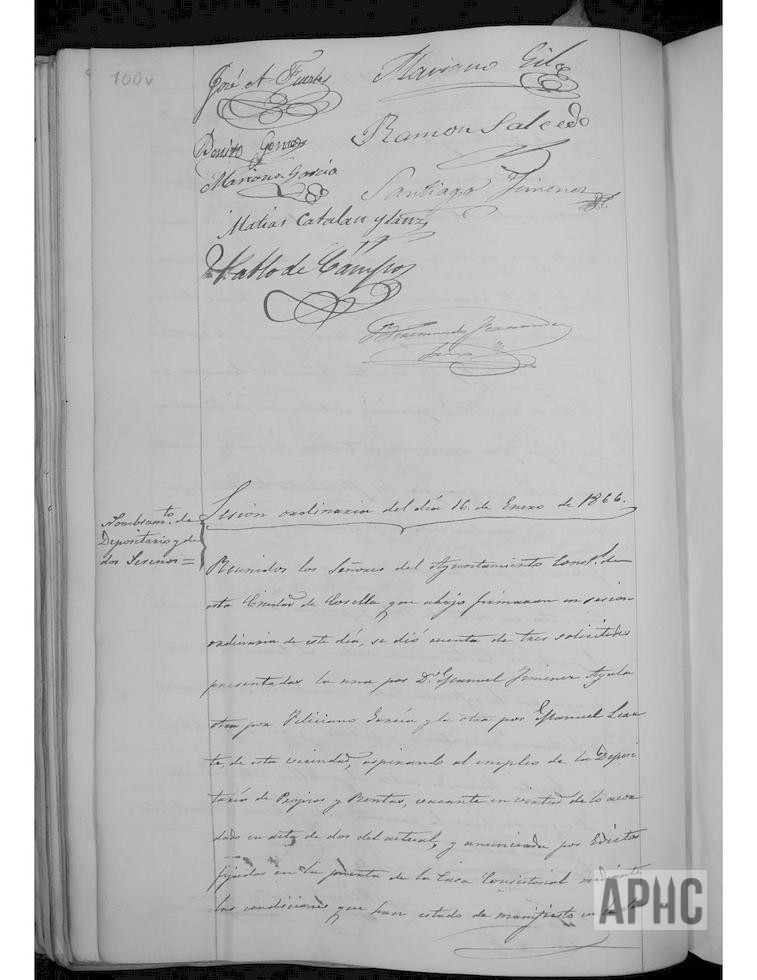 100v
José A. Fuertes Mariano Gil
Ramon Salcedo
Benito Gomez
Mariano Garcia
Santiago Jimenez
Matias Catalan y Sanz
Pablo de Campos
Raimundo Fernandez
Nombramto. de
Depositario y de
dos Serenos =
Sesion ordinaria del día 16. de Enero de 1866.
Reunidos los Señores del Ayuntamiento Constl. de
esta Ciudad de que abajo firmaran en sesion
ordinaria de este día, se dió cuenta de tres solicitudes
presentadas la una por D. Manuel Jimenez Ayala
otra por Feliciano García y la otra por Manuel Lean
te, de esta vecindad, aspirando al empleo de la Deposi
taría de Propios y Rentas, vacante en virtud de lo acor
dado en acta de dos del actual, y anunciada por Edictos
fijados en la puerta de la Casa Consistorial mediante
las condiciones que han estado de manifiesto en la
APHC